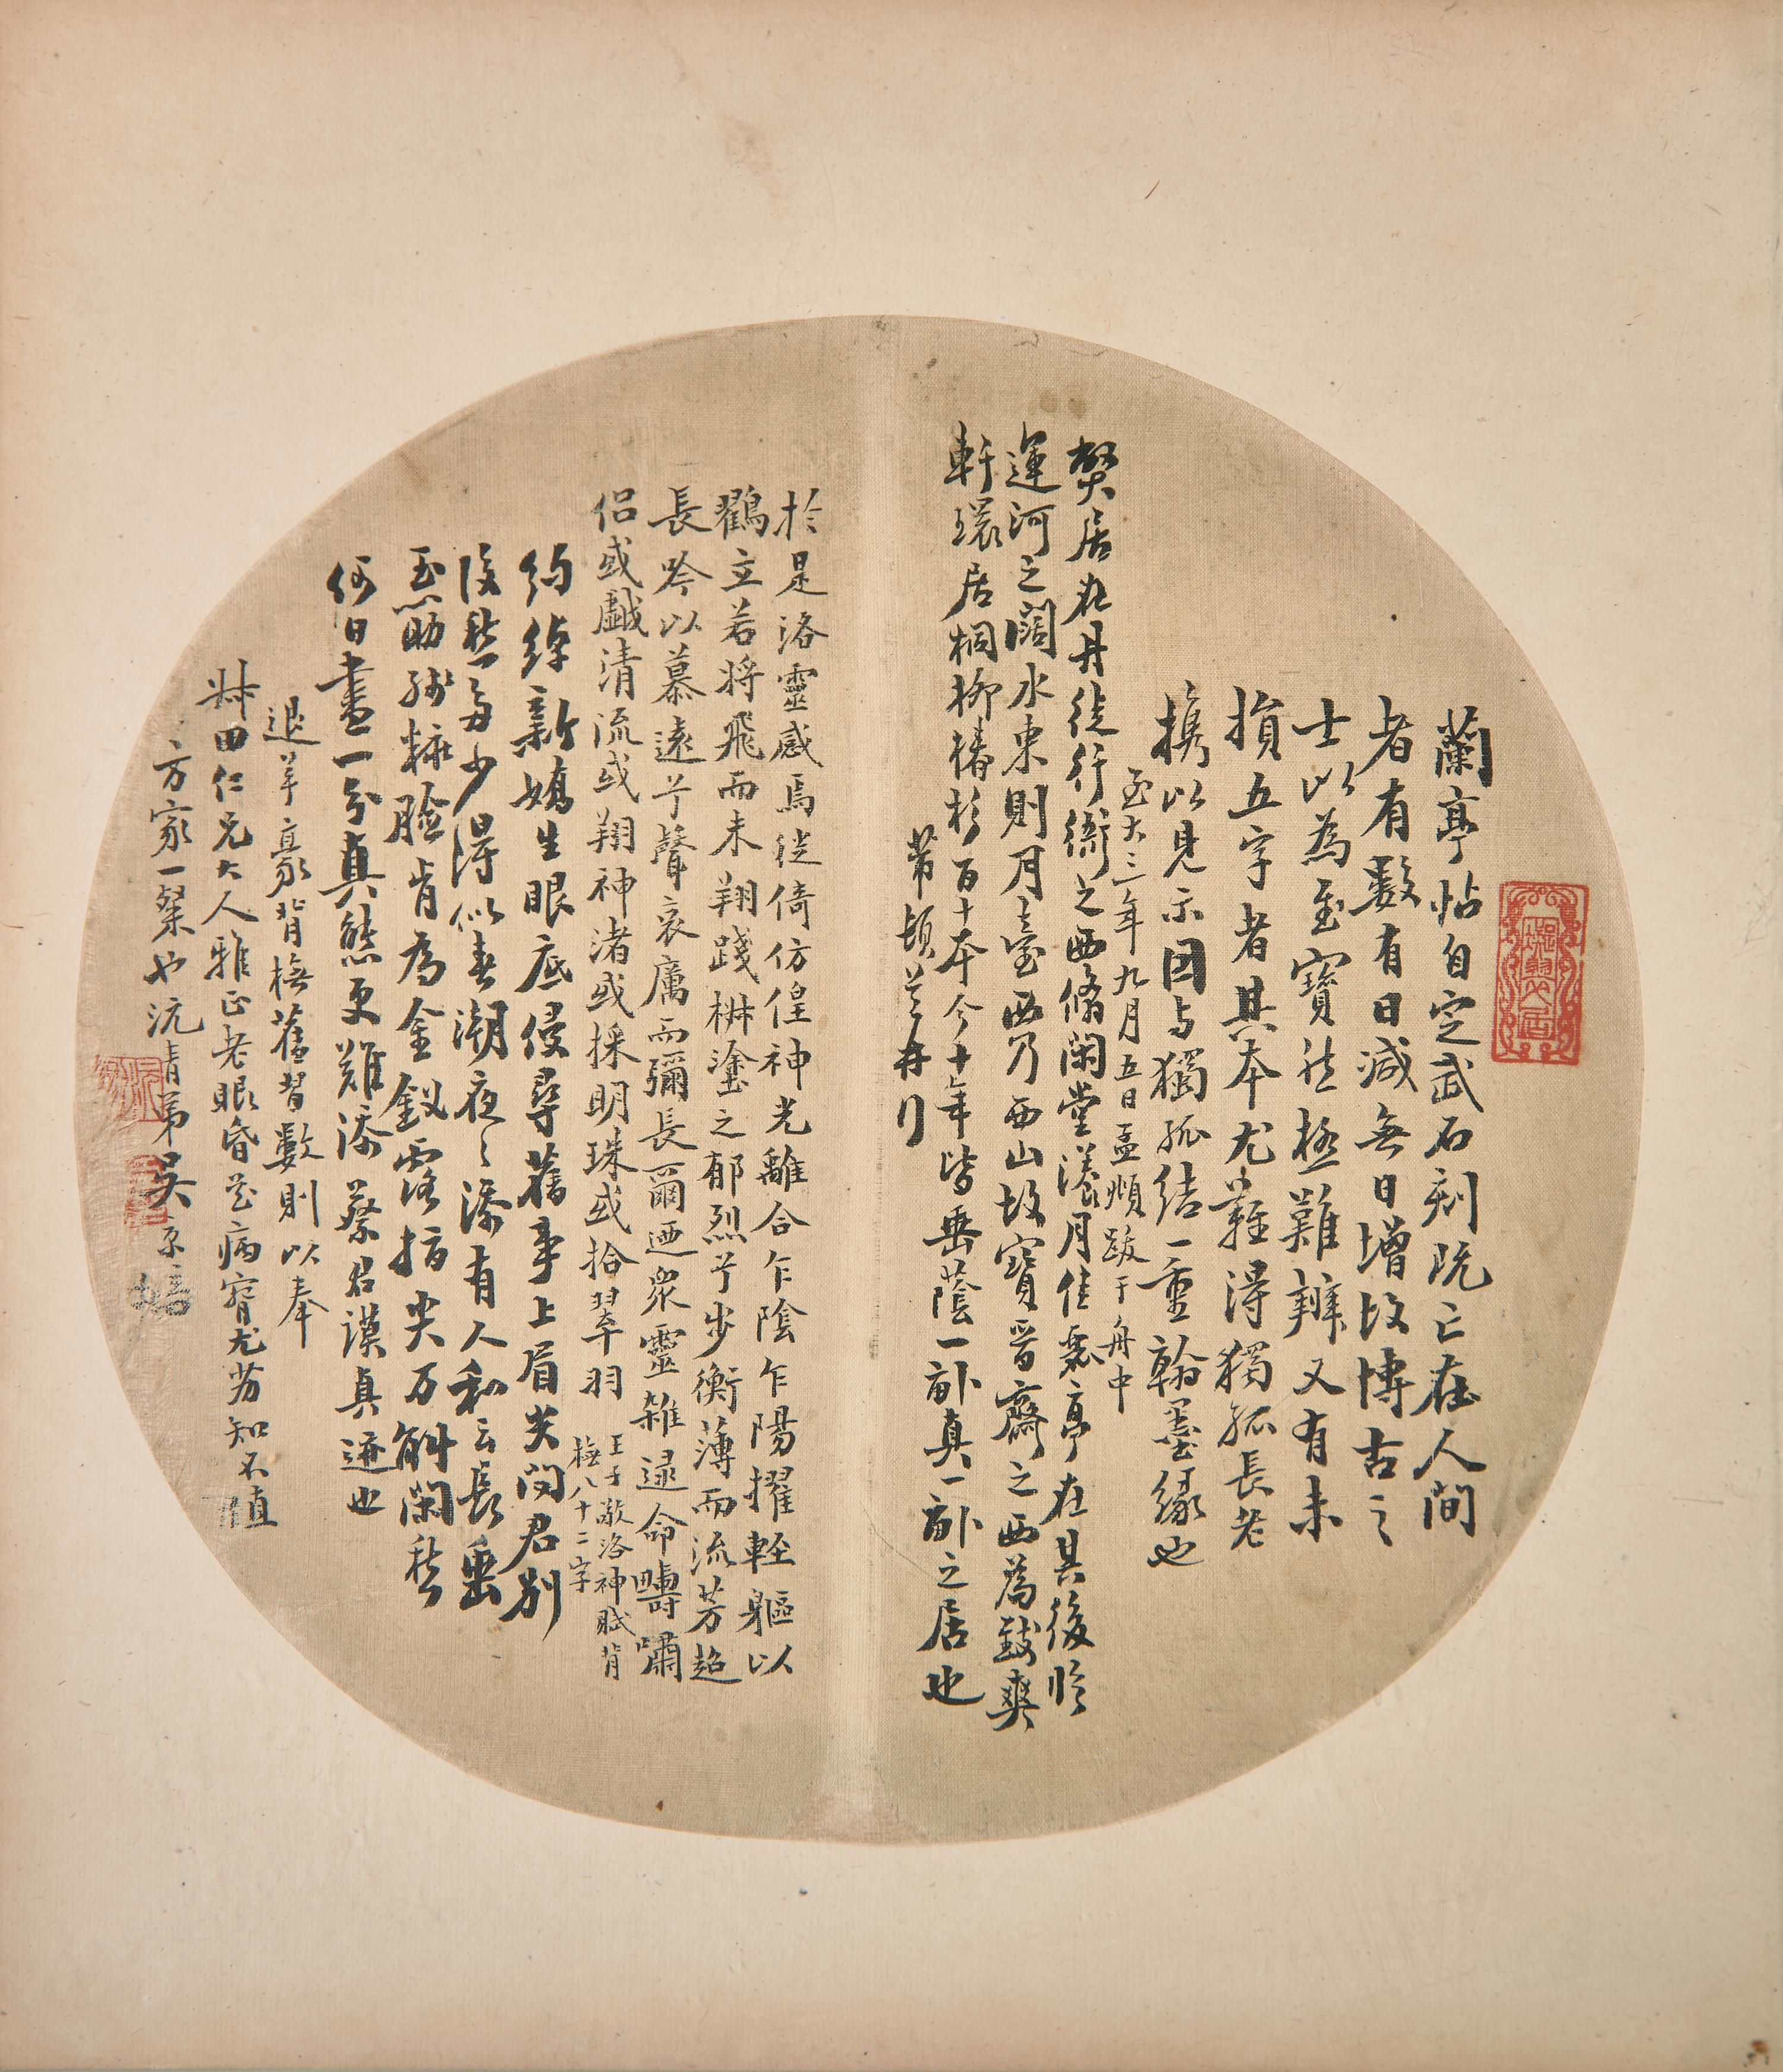 蘭亭帖自定武石刻既亡在人間
者有數有日減無日增故博古之
士以為至寶然極難辨又有未
損五字者其本尤難得獨孤長老
攜以見示因与獨孤結一重翰墨緣也
至大三年九月五日孟頫跋于舟中
弊居在丹徒行衙之西脩閑堂漾月佳麗亭在其後臨
運河之闊水東則月臺西乃西山故寶晉齋之西為致爽
軒環居桐柳椿杉百十本今十年皆垂蔭一畝真一畝之居也
芾頓首再行
於是洛靈感焉徙倚仿偟神光離合乍陰乍陽擢輕軀以
鶴立若將飛而未翔踐椒塗之郁烈兮步衡薄而流芳超
長吟以慕遠兮聲哀厲而彌長爾迺衆靈雜遝命疇嘯
侶或戲清流或翔神渚或採明珠或拾翠羽 王子敬洛神賦背
橅八十二字
約綽新嬌生眼底侵尋舊事上眉尖問君別
後愁多少得似春潮夜夜添有人和云長垂
玉助殘糚臉肯為金釵露指尖万斛閑愁
何日盡一分真態更難添 蔡君謨真迹也
退羊豪背橅舊習數則以奉
叔田仁兄大人雅正老眼昏花病窘尤劣知不值
方家一粲也沆青弟吳京培